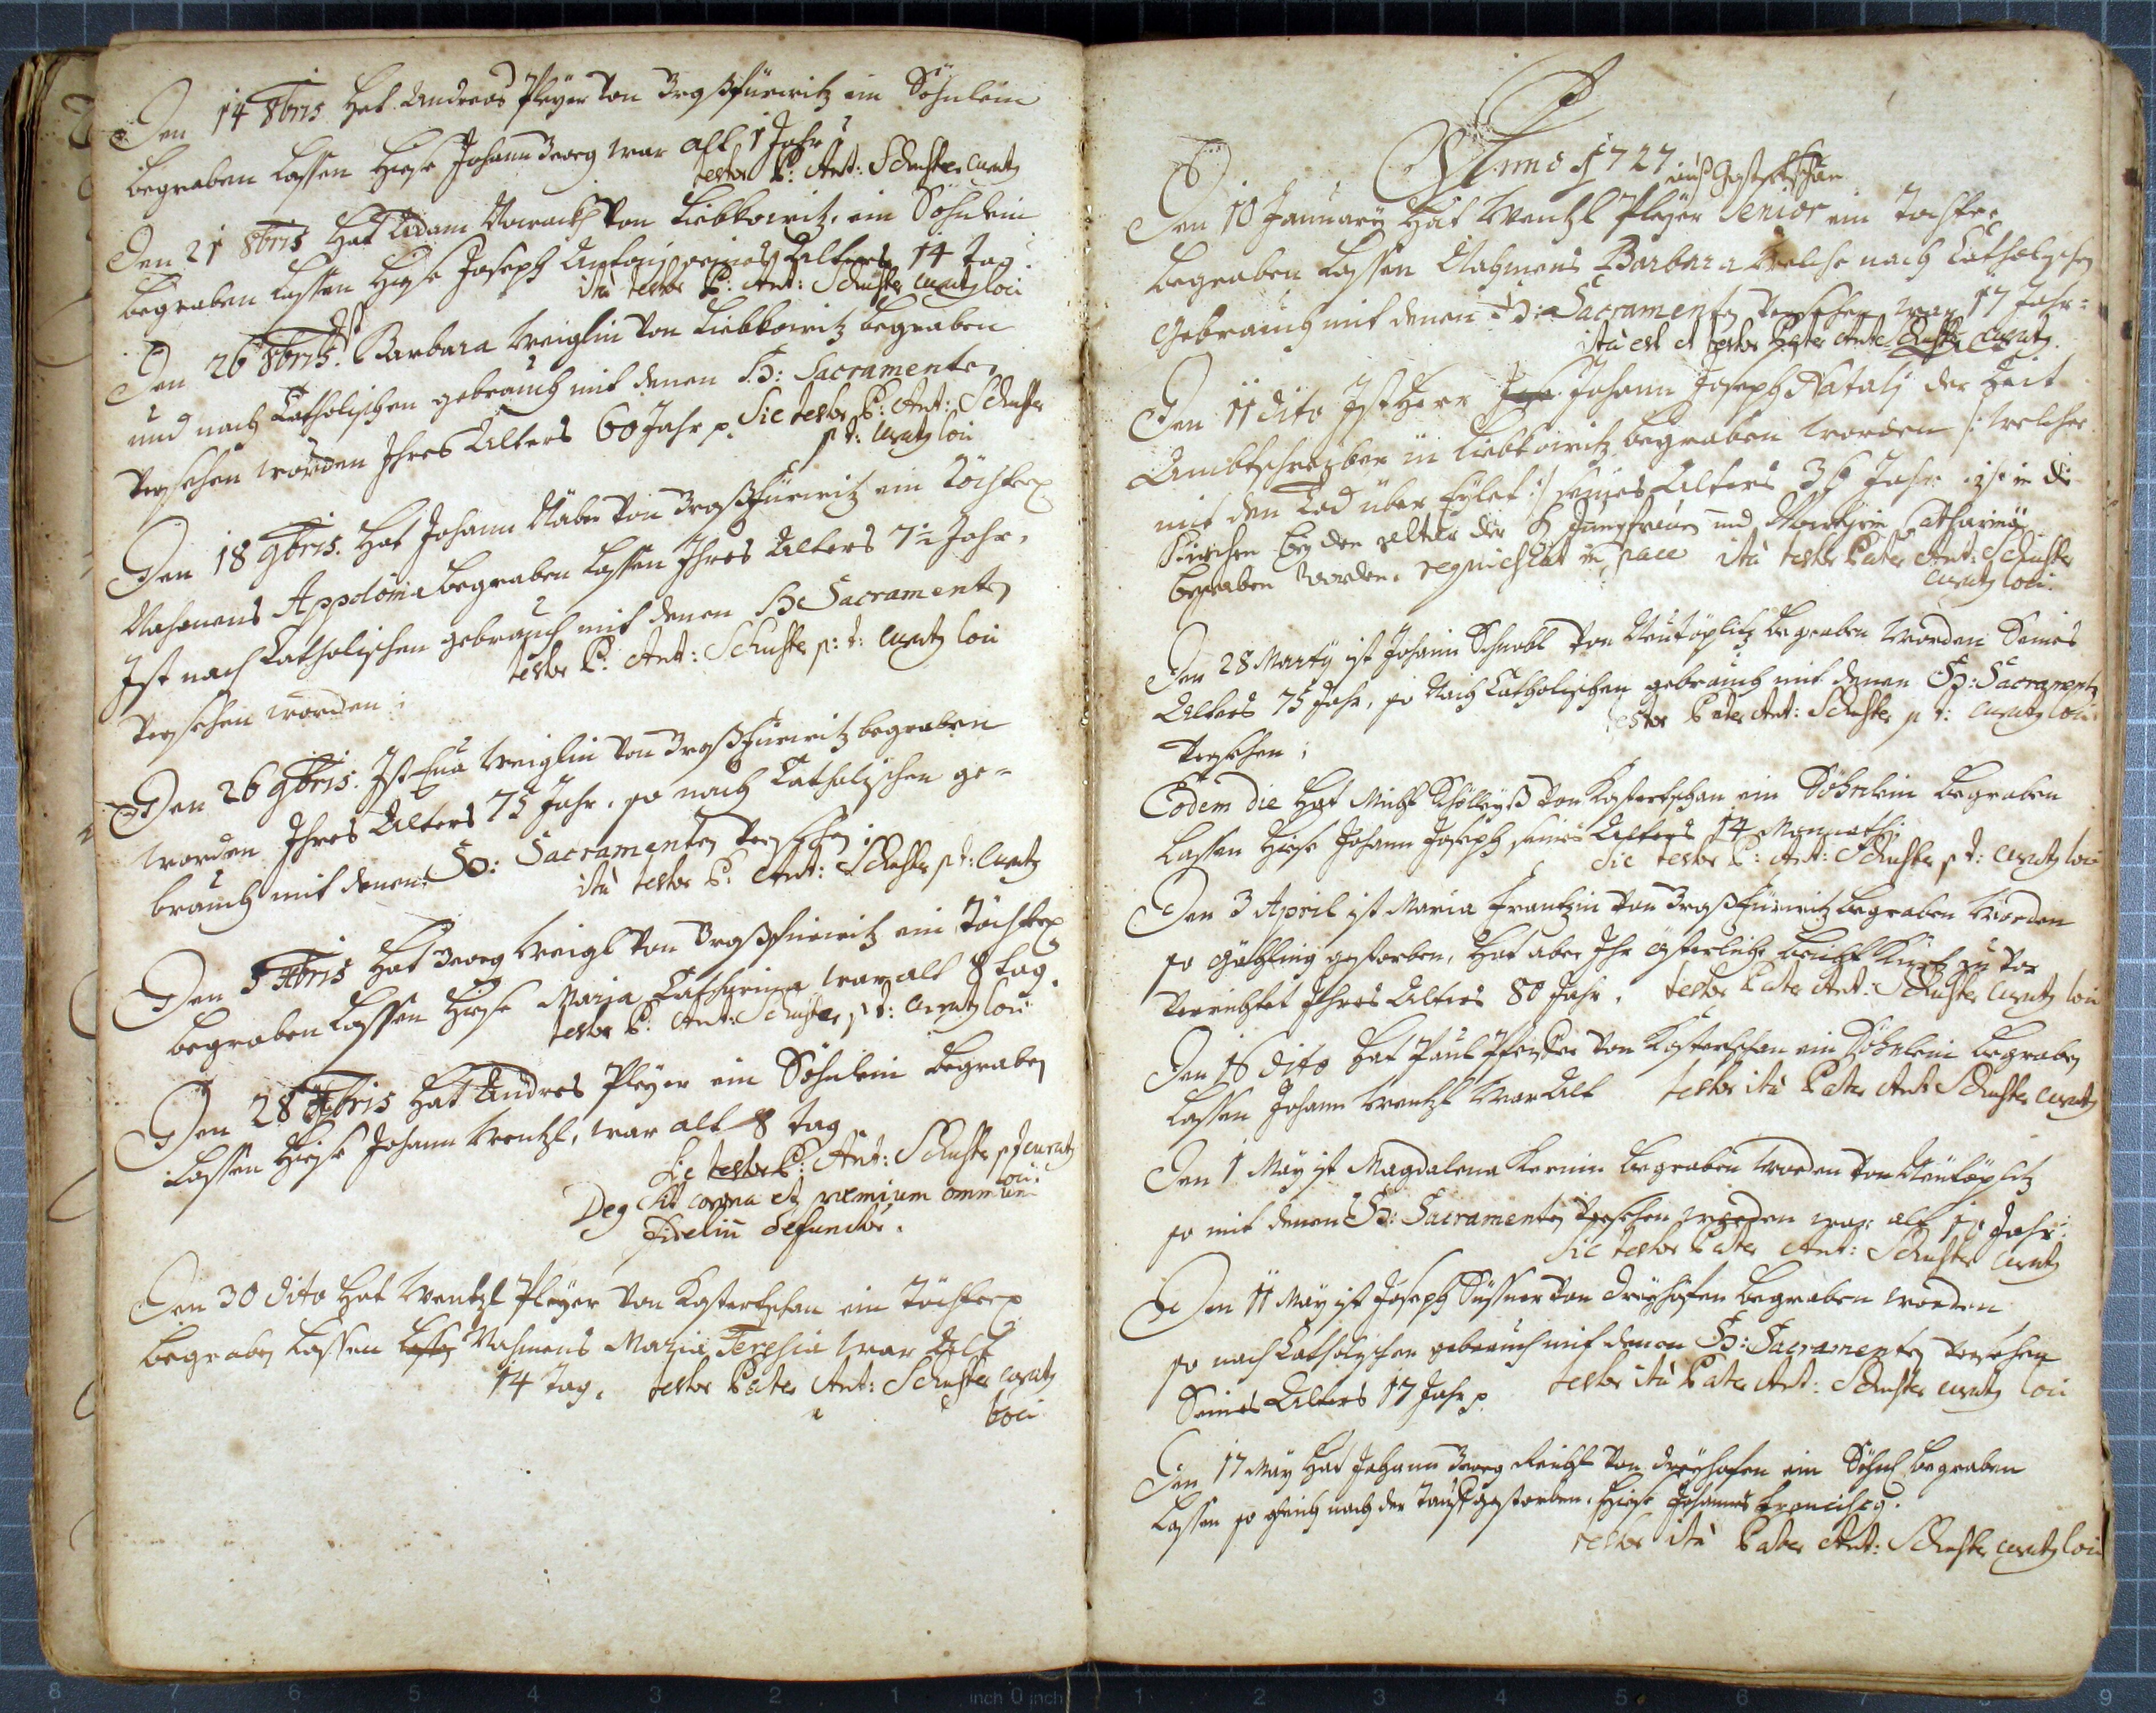 Den 14 8bris Hat Andreas Pleyer von Großfürwitz ein Söhnlein
begraben lassen hiese Johann Georg war alt 1 Jahr
testor P: Ant: Schuster Curatg
Den 21 8bris Hat Adam von Liebkowitz ein Söhnlein
begraben lassen hiese Joseph Antonj seines Alters 14 tag
ità testor P: Ant: Schuster Curatg loci
Den 26 8bris ist Barbara Weiglin von Liebkowitz begraben
und nach Catholischen gebrauch mit denen H: Sacramenten
versehen worden Ihres Alters 60 Jahr p. Sic testor P: Ant: Schuster
p t: Curatg loci
Den 18 9bris. Hat Johann Näber von Großfürwitz ein Töchterl
Nahmens Appolonia begraben lassen Ihres Alters 7½ Jahr,
Ist nach Catholischen gebrauch mit denen H: Sacramenten
versehen worden;
testor P: Ant: Schuster p: t: Curatg loci
Den 26 9bris. Ist Eva Weiglin von Großfürwitz begraben
worden Ihres Alters 75 Jahr, so nach Catholischen ge-
brauch mit denen H: Sacramenten versehen;
ità testor P: Ant: Schuster p t: Curatg
Den 5 Xbris Hat Georg Weigl von Großfürwitz ein Töchterl
begraben lassen hiese Maria Catharina war alt 8 tag.
testor P: Ant: Schuster p t: Curatg loci
Den 28 Xbris Hat Andres Pleyer ein Söhnlein begraben
lassen hiese Johann Wentzl, war alt 8 tag
Sic testor P: Ant: Schuster p t curatg
loci.
Deg sit corona et premium omnium
Fidelium defunctor.
Den 30 dito Hat Wentzl Pleyer von Kostertschan ein Töchterl
begraben lassen Nahmens Maria Teresia war Alt
14 tag. testor Pater Ant: Schuster Curatg
loci
Anno 1727
Den 10 January Hat Wentzl Pleyer Senior ein Tochter
begraben lassen Nahmens Barbara welche nach Catholischen
gebrauch mit denen H: Sacramenten versehen war 17 Jahr:
ità est et testor Pater Ant: Schuster Curatg.
Den 11 dito Ist Herr Johann Joseph Natalj der Zeit
Ambtschreiber in Liebkowitz begraben worden /: welcher
mit den Tod über Eylet :/ seines Alters 36 Jahr ist in die
Kirchen bey den altar der H Jungfrauen und Martyrin Catharina
begraben worden. requiescat in pace ità testor Pater Ant: Schuster
Curatg loci.
Den 28 Marty ist Johann Schnabl von Neutöplitz begraben worden Seines
Alters 75 Jahr, so Nach Catholischen gebrauch mit denen H: Sacramenten
versehen;
testor Pater Ant: Schuster p t: Curatg loci
Eodem die Hat Michl von Kostertschan ein Söhnlein begraben
lassen hiese Johann Joseph seines Alters 14 Monnath;
Sic testor P: Ant: Schuster p t: Curatg loci
Den 3 April ist Maria Frantzin von Großfürwitz begraben worden
so gähling gestorben, hat aber Ihr österliche beicht kurtz zu vor
verrichtet Ihres Alters 80 Jahr. testor Pater Ant: Schuster Curatg loci
Den 16 dito Hat Paul von Kostertschan ein Söhnlein begraben
lassen Johann Wentzl war Alt testor ità Pater Ant: Schuster Curatg
Den 1 May ist Magdalena Kernin begraben worden von Neutöplitz
so mit denen H: Sacramenten versehen worden war alt Jahr:
Sic testor Pater Ant: Schuster Curatg
Den 11 May ist Joseph Süssner von Dreyhöfen begraben worden
so nach Catholischen gebrauch mit denen H: Sacramenten versehen
Seines Alters 17 Jahr p. testor ità Pater Ant: Schuster Curatg loci
Den 17 May Hat Johann Georg Reichl von Dreyhöfen ein Söhnl begraben
lassen so gleich nach der Tauff gestorben. hiese Johannes Franciscg.
testor ità Pater Ant: Schuster Curatg loci